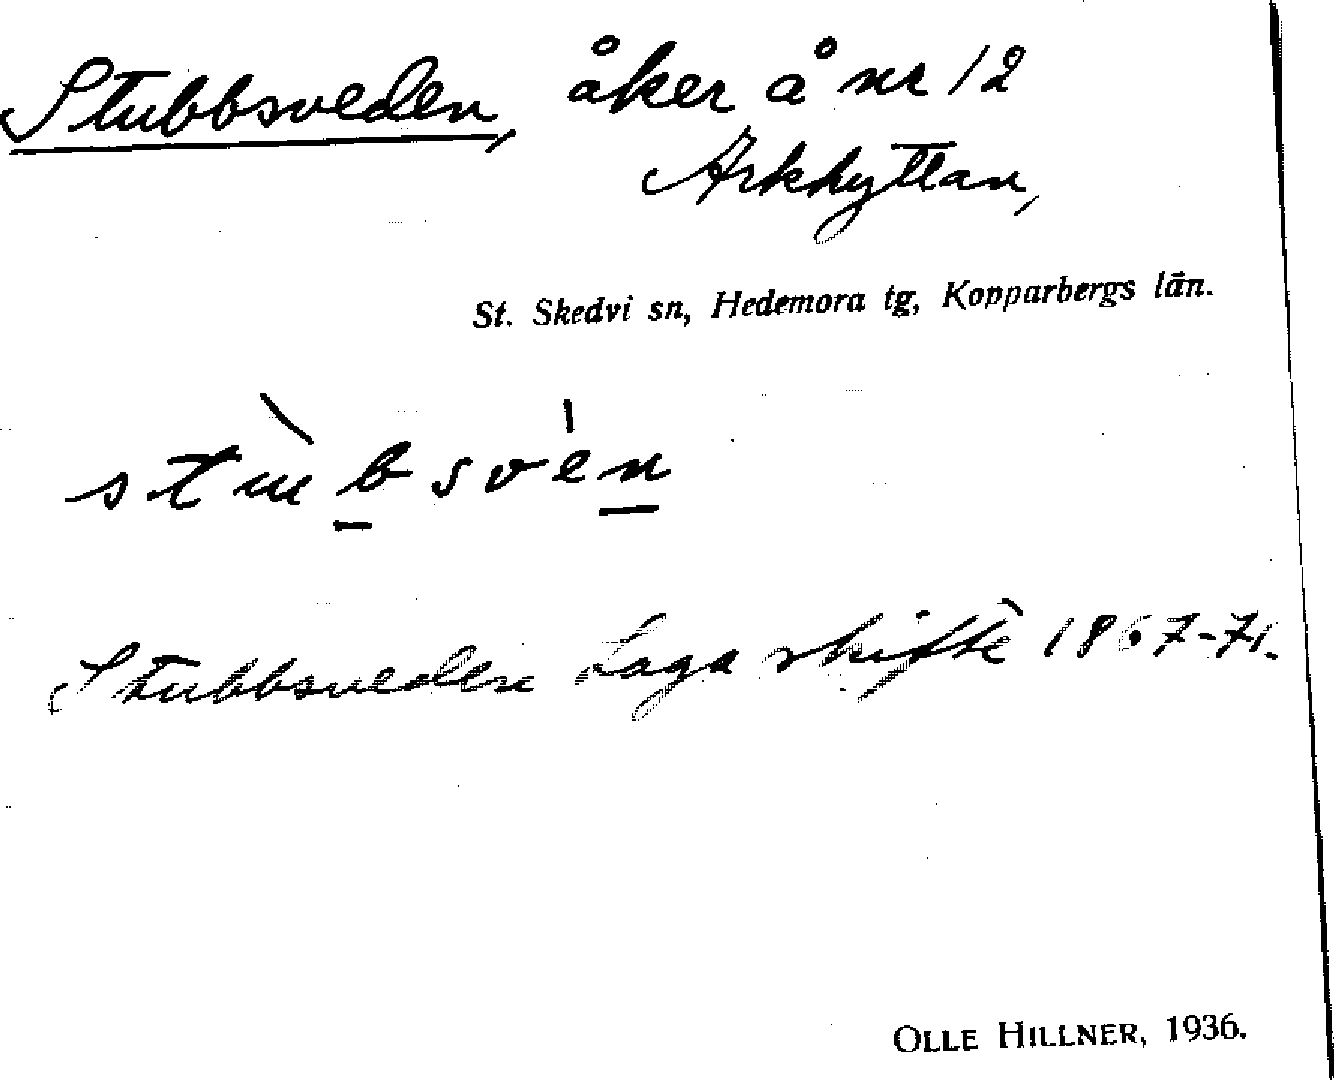 Stubbsveden, åker å nr 12
Arkhyttan,
St. Skedvi sn, Hedemora tg, Kopparbergs län.
Stubbsveden Laga skifte 1867-71.
OLLE HILLNER, 1936.